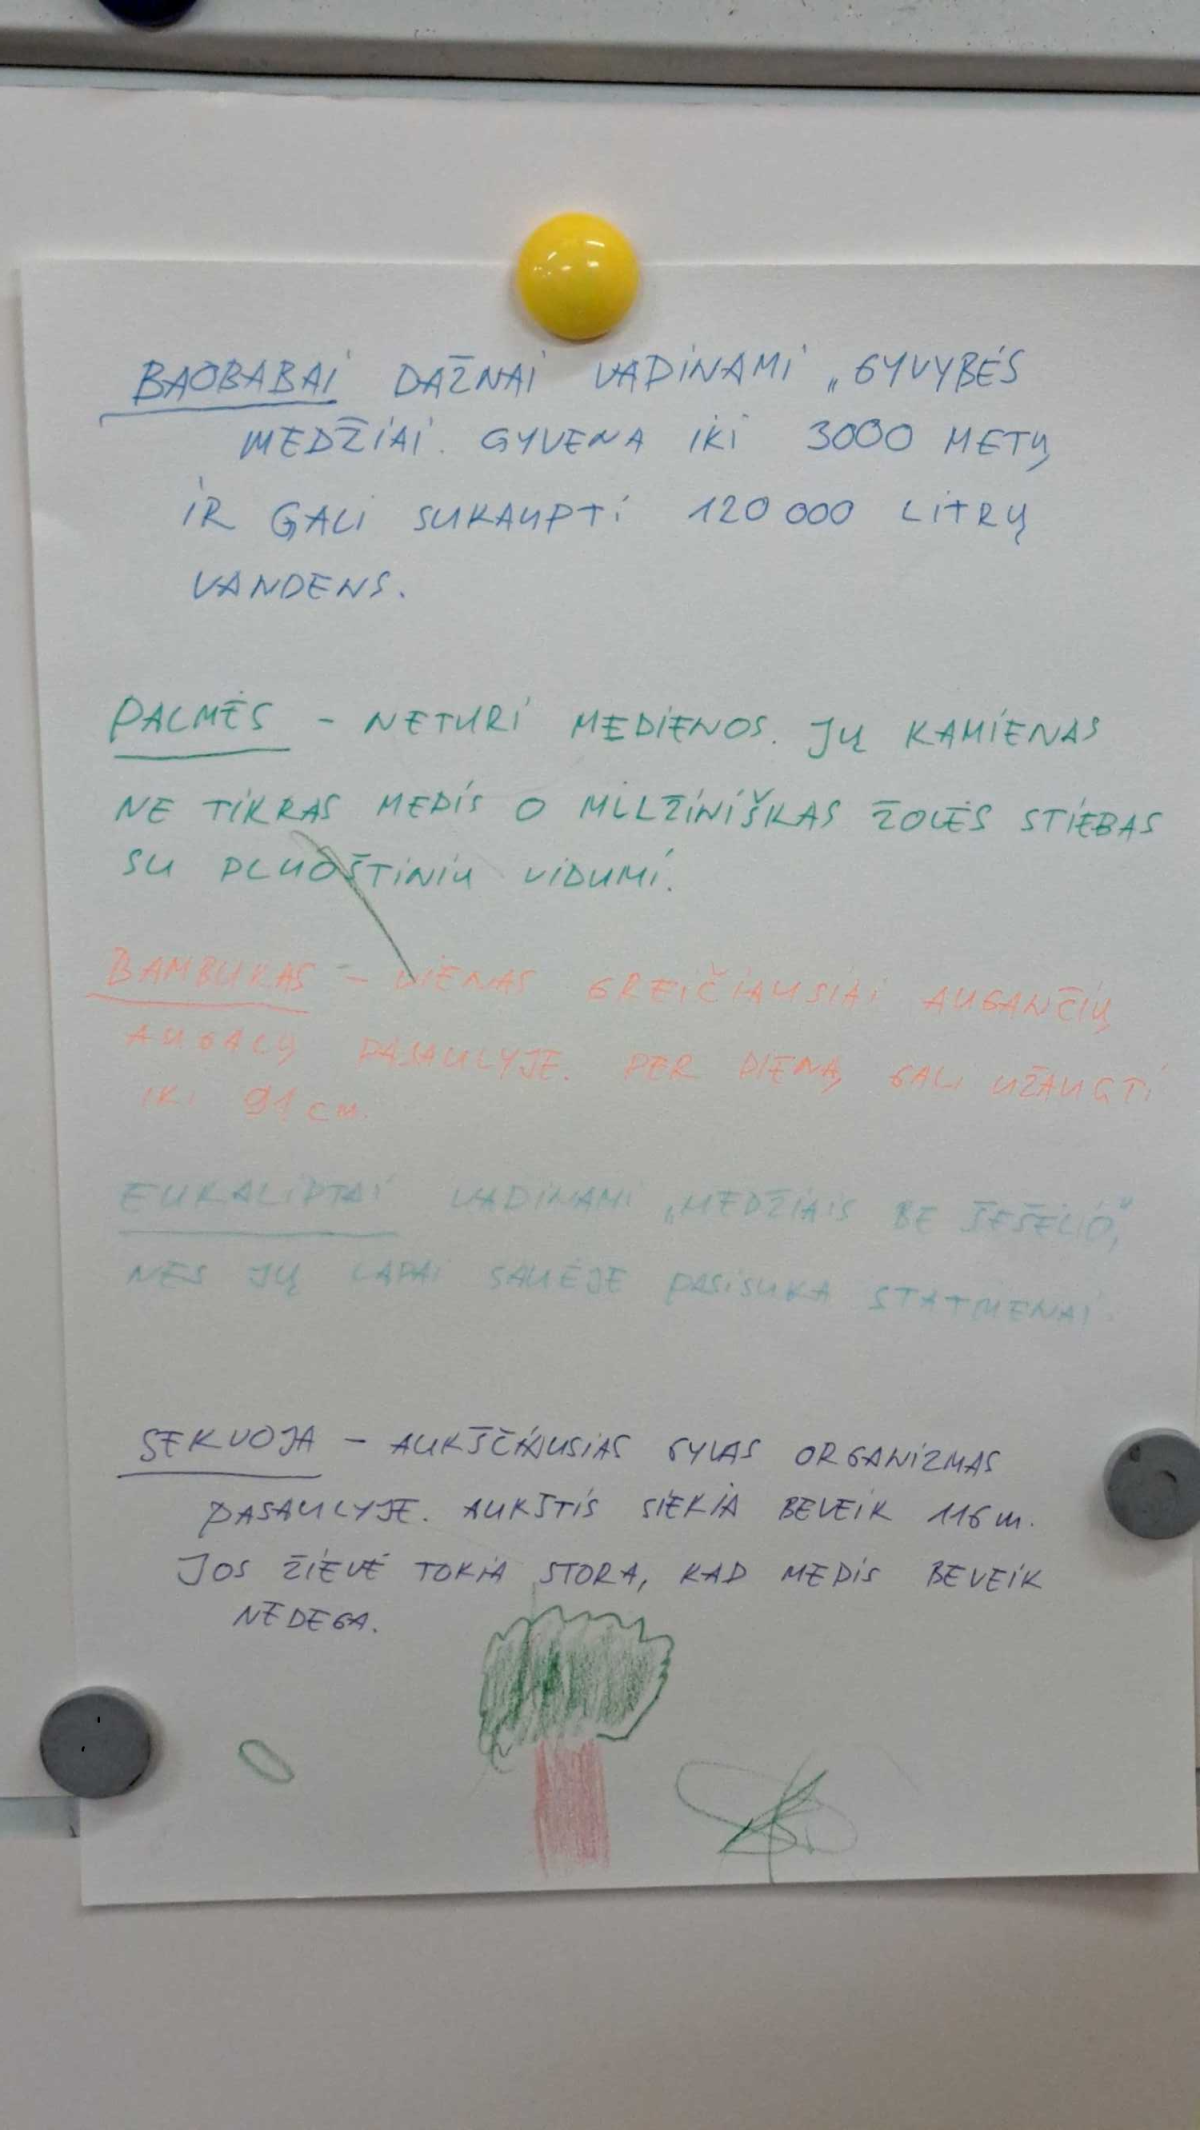 BAOBABAI DAŽNAI VADINAMI „GYVYBĖS
MEDŽIAI. GYVENA IKI 3000 METŲ
IR GALI SUKAUPTI 120 000 LITRŲ
VANDENS.
PALMĖS - NETURI MEDIENOS. JŲ KAMIENAS
NE TIKRAS MEDIS O MILŽINIŠKAS ŽOLĖS STIEBAS
SU PLUOŠTINIU VIDUMI.
BAMBUKAS - VIENAS GREIČIAUSIAI AUGANČIŲ
AUGALŲ PASAULYJE. PER DIENĄ GALI UŽAUGTI
IKI 91 cm.
EUKALIPTAI VADINAMI „MEDŽIAIS BE ŠEŠĖLIO",
NES JŲ LAPAI SAULĖJE PASISUKA STATMENAI.
SEKVOJA - AUKŠČIAUSIAS GYVAS ORGANIZMAS
PASAULYJE. AUKŠTIS SIEKIA BEVEIK 116 m.
JOS ŽIEVĖ TOKIA STORA, KAD MEDIS BEVEIK
NEDEGA.